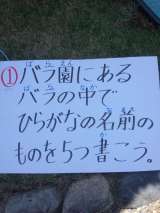 ①バラ園にある
バラの中で
ひらがなの名前の
ものを5つ書こう。